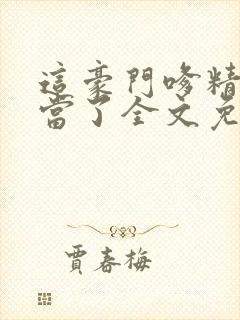 這豪門哆精
當了全文免
賈春梅